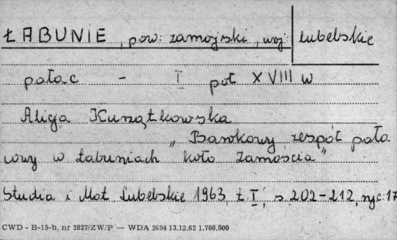 ŁABUNIE, pow: zamojski, woj: lubelskie
pałac - I poł XVIII w
Alicja Kurzątkowska
"Barokowy zespół pała
cowy w Łabuniach koło Zamościa"
Studia i Mat. Lubelskie 1963, t. I, s. 202-212, ryc. 17
CWD - B-15-b, nr 2827/ZW/P — WDA 2694 13.12.62 1.700.000